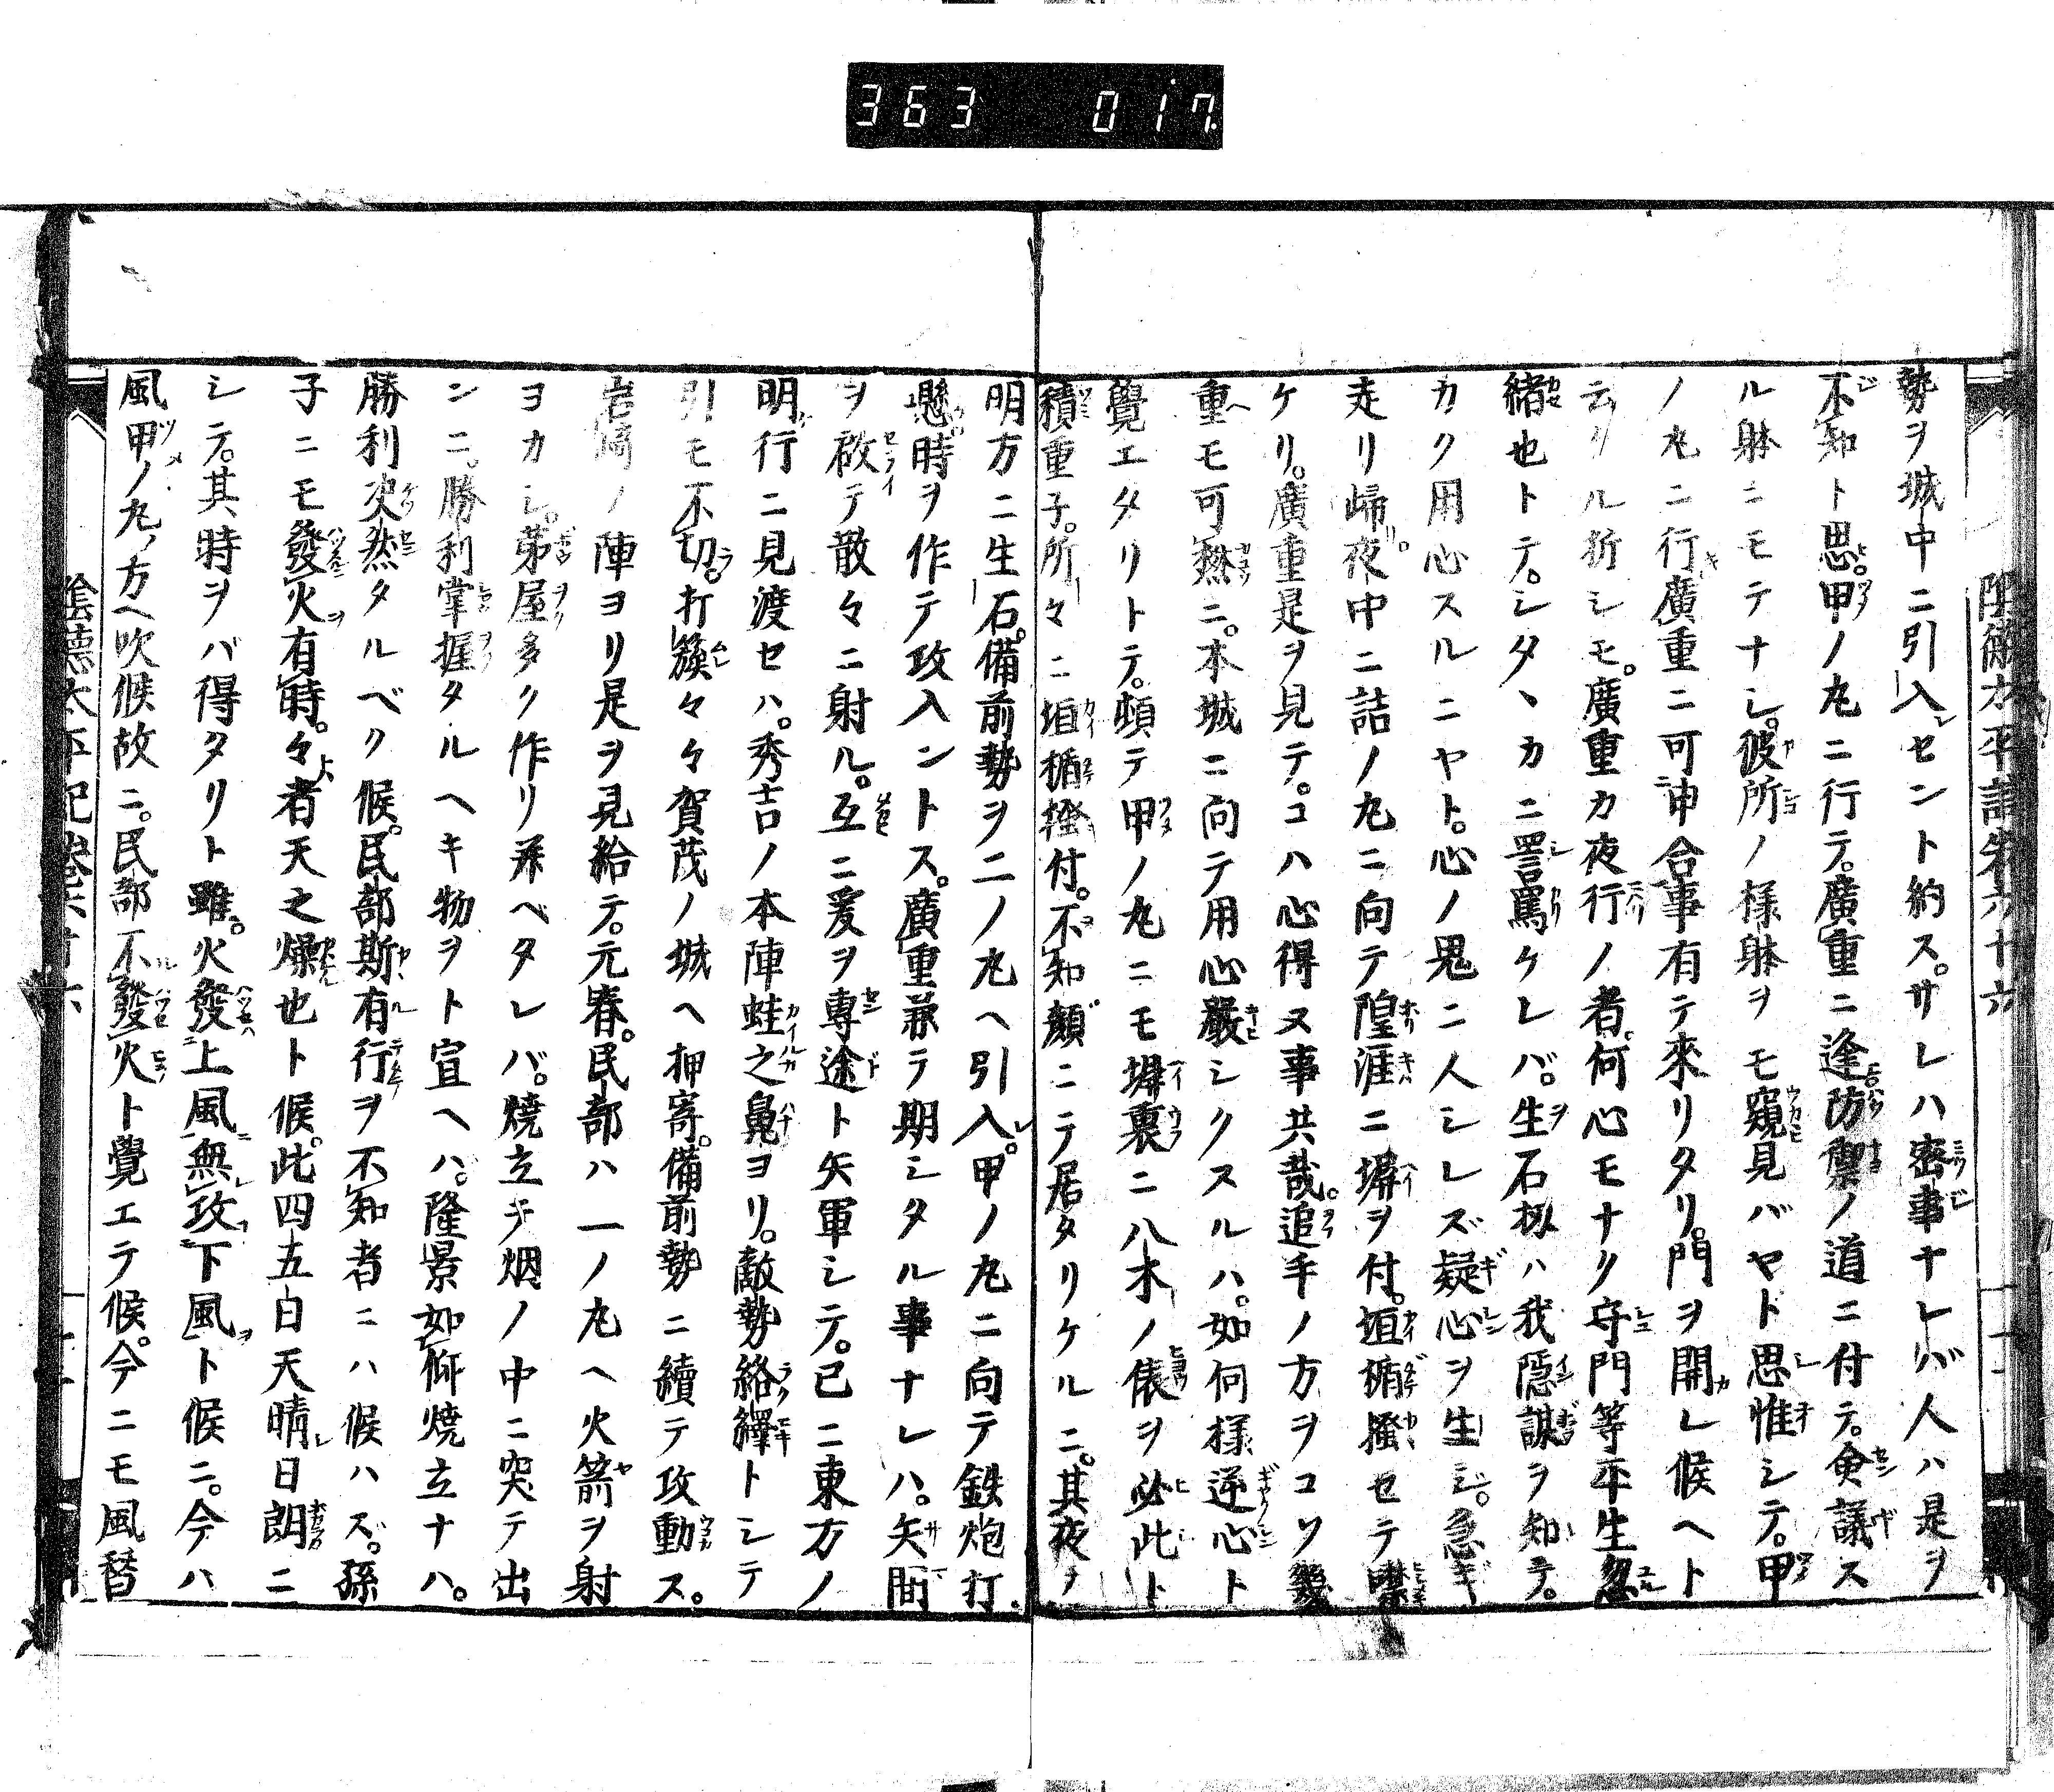 363 017
勢ヲ城中ニ引入セント約ス。サレハ密事ナレバ人ハ是ヲ
不知ト思。甲ノ丸ニ行テ。廣重ニ逢防禦ノ道ニ付テ。僉議ス
ル躰ニモテナシ。彼所ノ様躰ヲモ窺見バヤド思惟シテ。甲
ノ丸ニ行廣重ニ可申合事有テ來リタリ。門ヲ開レ候ヘト
云ケル折シモ。廣重カ夜行ノ者。何心モナク守門等平生
緒也トテ。シタヽカニ詈罵ケレバ。生石扨ハ我隠謀ヲ知テ。
カク用心スルニヤト。心ノ鬼ニ人シレズ疑心ヲ生ジ。急ギ
走リ歸夜中ニ詰ノ丸ニ向テ隍涯ニ塀ヲ付。垣楯搔セテ
ケリ。廣重是ヲ見テ。コハ心得ヌ事共哉。追手ノ方ヲコソ幾
重モ可然ニ。本城ニ向テ用心嚴シクスルハ。如何様逆心ト
覺エタリトテ。頓テ甲ノ丸ニモ塀裏ニ八木ノ俵ヲ必此ト
積重子。所々ニ垣楯付。不知顔ニテ居タリケルニ。其夜ノ
明方ニ生石。備前勢ヲ二ノ丸ヘ引入。甲ノ丸ニ向テ鉄炮打
懸時ヲ作テ攻入ントス。廣重兼テ期シタル事ナレハ。矢間
ヲ啟テ散々ニ射ル。互ニ爰ヲ専途ト矢軍シテ。已ニ東方ノ
明行ニ見渡セハ。秀吉ノ本陣蛙之鼻ヨリ。敵勢絡繹トシテ
引モ不切。打簇々々賀茂ノ城ヘ押寄。備前勢ニ續テ攻動ス。
岩崎ノ陣ヨリ是ヲ見給テ。元春。民部ハ一ノ丸ヘ火箭ヲ射
ヨカシ。茅屋多ク作リ並ベタレバ。燒立テ烟ノ中ニ突テ出
ンニ。勝利掌握タルヘキ物ヲト宣ヘハ。隆景如仰燒立ナハ。
勝利決然タルベク候。民部斯有行ヲ不知者ニハ候ハズ。孫
子ニモ發火有時。々者天之燥也ト候。此四五日天晴日朗ニ
シテ。其時ヲバ得タリト雖。火發上風無攻下風ト候ニ。今ハ
風甲ノ丸ノ方ヘ吹候故ニ。民部不發火ト覺エテ候。今ニモ風替
陰德太平記卷六十六